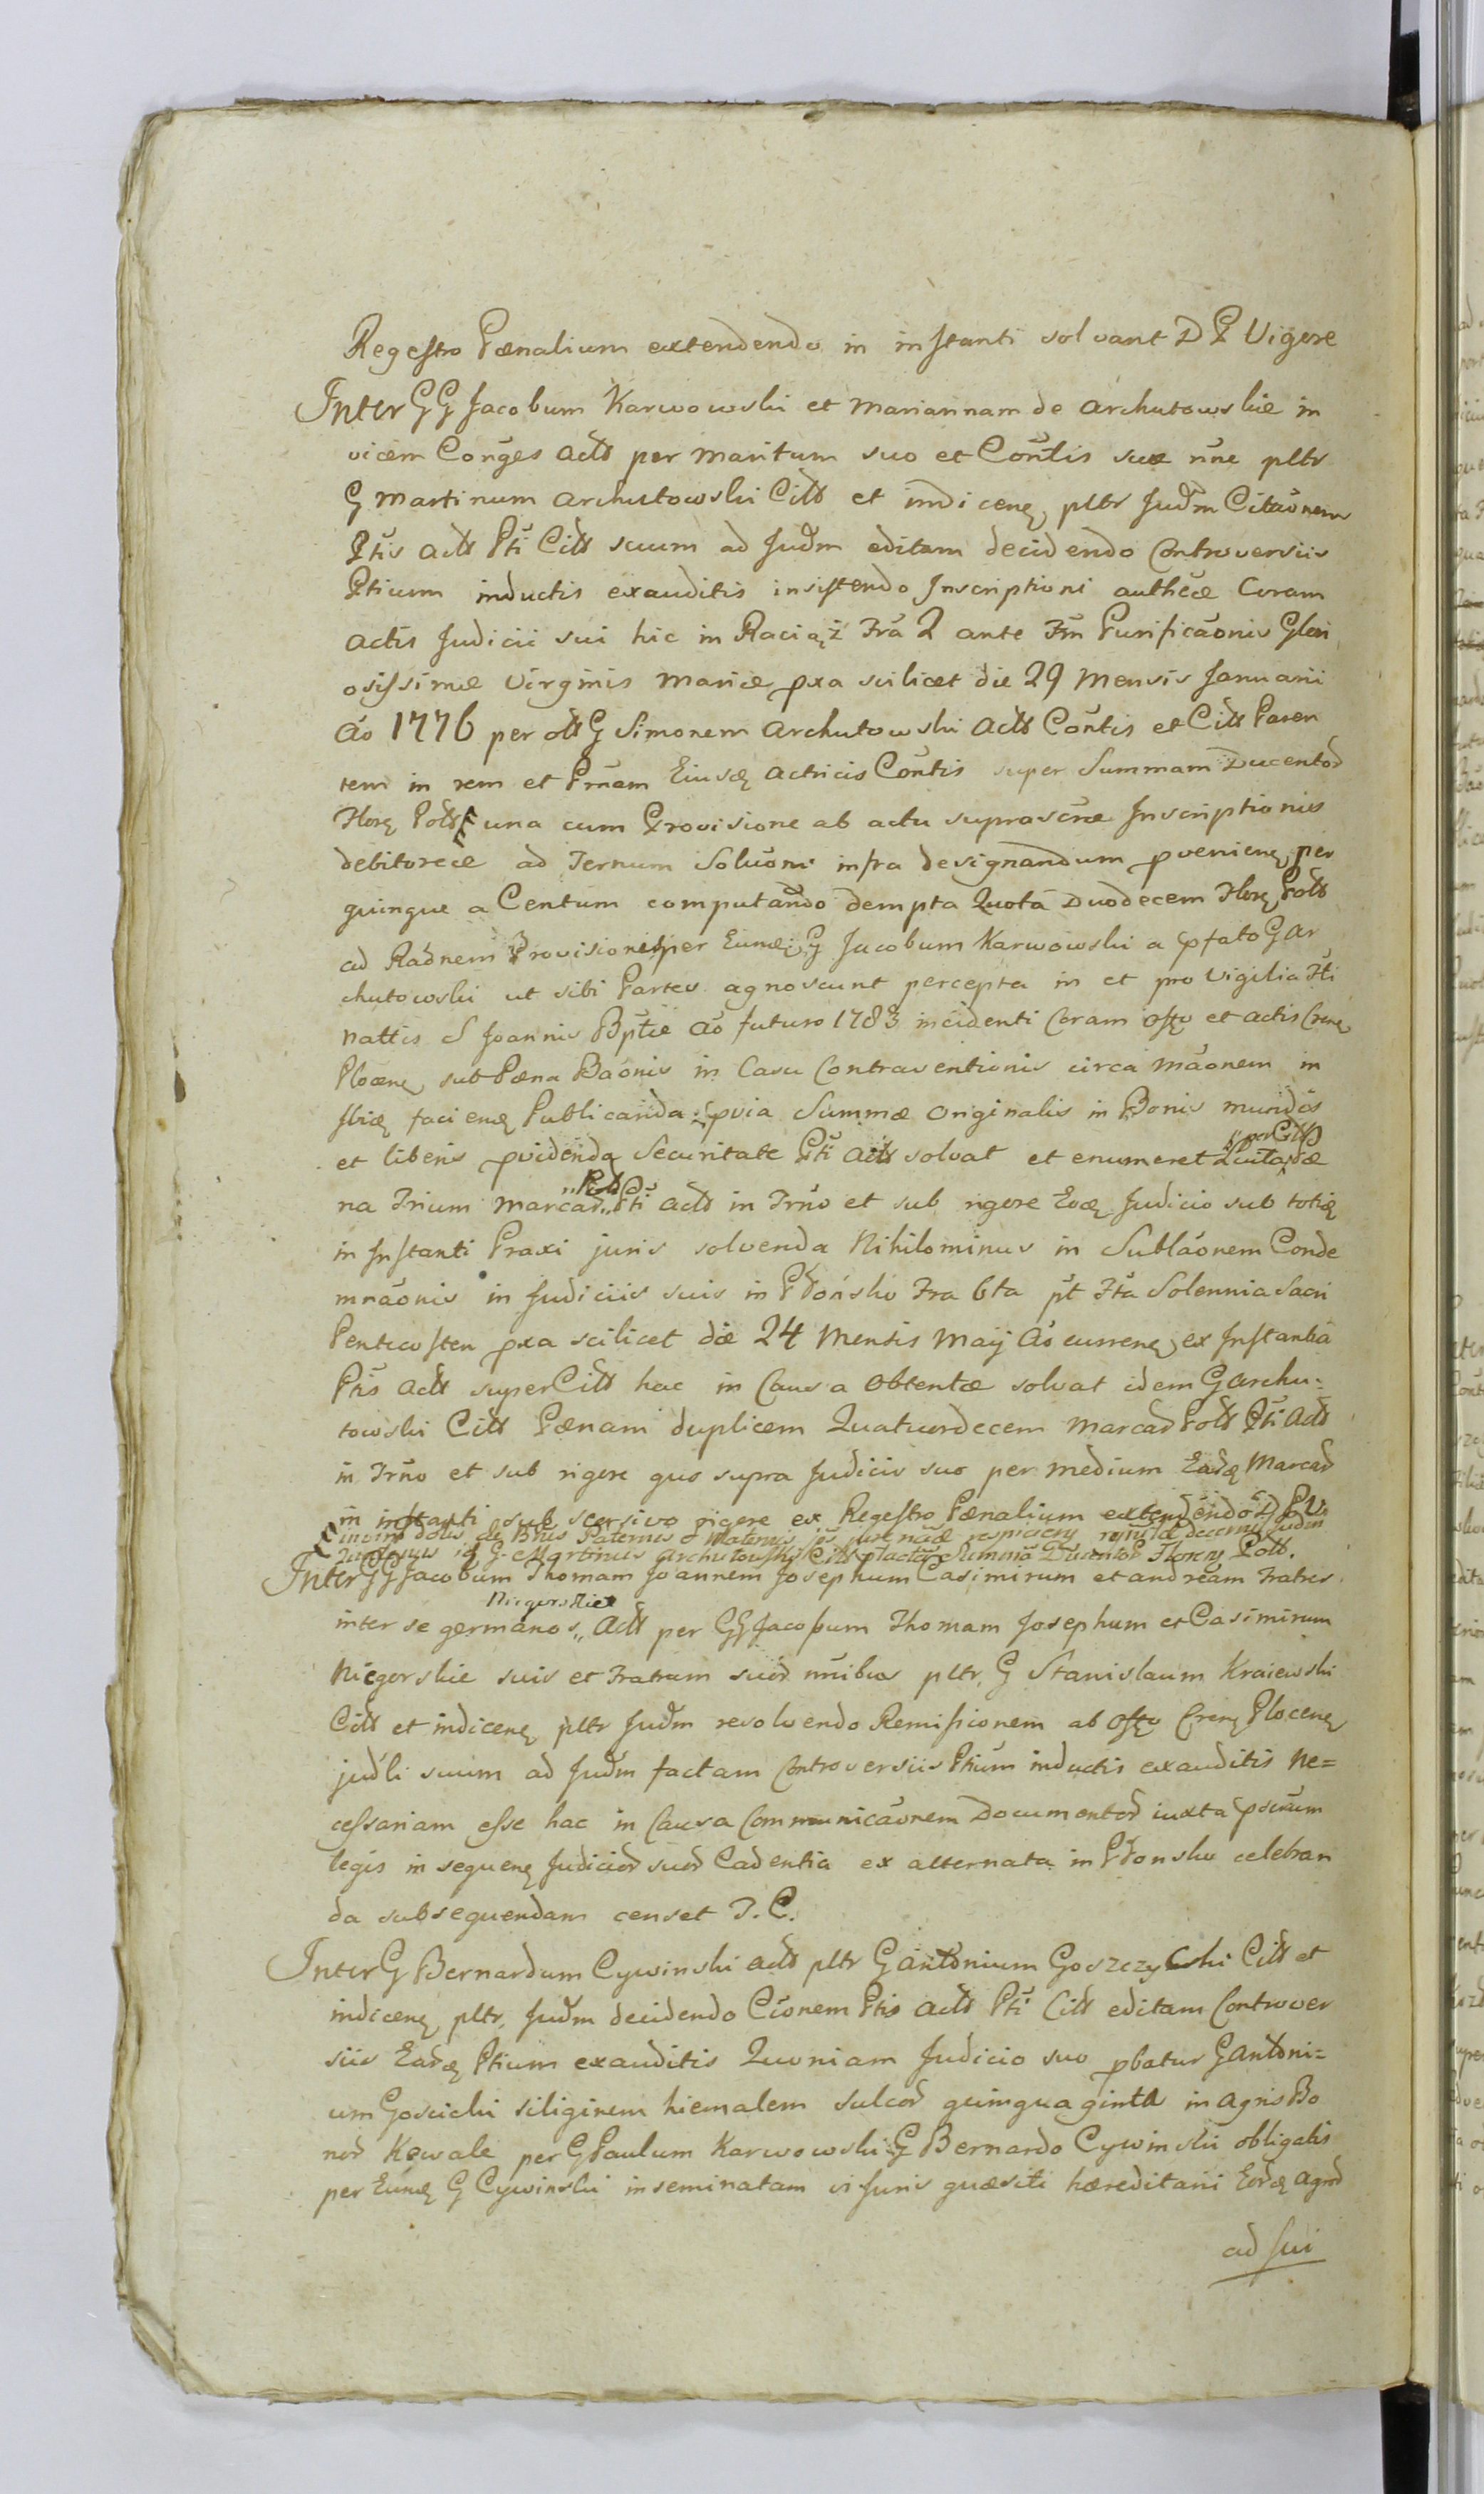 Regestro Pœnalium extendendo in instanti solvant D P Vigore
Inter GG Jacobum Karwowski et Mariannam de Archutowskie in
vicem Conges Actt per Maritum suo et Contlis suæ nne pltr
G Martinum Archutowski Citt et indicenę pltr Judm Citaonem
Ptis Actt Pti Citt suum ad Judm editam decidendo Controversiis
Ptium inductis exauditis insistendo Inscriptioni authecæ Coram
Actis Judicii sui hic in Raciąż Fra 2 ante Fm Purificaonis Glori
osissimæ Virginis Mariæ pxa scilicet die 29 Mensis Januarii
Ao 1776 per olt G Simonem Archutowski Actt Contis et Citt Paren
tem in rem et Prnam Eiusdę Actricis Contis super Summam Ducentor
Florę Poltt una cum Provisione ab actu suprascræ Inscriptionis
debitoreæ ad Ternum Soluoni infra designandum pvenienę per
quinque a Centum computando dempta Quota Duodecem Florę Poltt
ad Raonem Provisionis per Eundę G Jacobum Karwowski a pfato G Ar
chutowski ut sibi Partes agnoscunt percepta in et pro Vigilia Fti
Nattis S Joannis Bptæ Ao futuro 1783 incidenti Coram Offo et Actis Crenę
Plocenę sub Pœna Baonis in Casu Contraventionis circa Maonem in
ibidę facienę Publicanda pvia Summæ Originalis in Bonis mundis
et liberis pvidenda Securitate Pti Actt solvat et enumeret Luita per Citt Pœ
na Trium Marcar Poltt Pti Actt in Trno et sub rigore Eodę Judicio sub totidę
in Instanti Praxi juris solvenda Nihilominus in Sublaonem Conde
mnaonis in Judiciis suis in Płońsko Fra 6ta pt Fta Solennia Sacri
Pentecosten pxa scilicet die 24 Mensis Maij Ao currenę ex Instantia
Ptis Actt super Citt hac in Causa Obtentæ solvat idem G Archu:
towski Citt Pœnam duplicem Quatuordecem Marcar Poltt Pti Actt
in Trno et sub rigore quo supra Judicio suo per medium Earę Marcar
in instanti sub recisivo rigere ex Regestro Pœnalium extendendo D P V.
in vim dotis de Bnis Paternis et Maternis
G Martinus Archutowski Citt Summa Ducentor Florenę Poltt.
Inter GG Jacobum Thomam Joannem Josephum Casimirum et Andream Fratres
Niegorskie
inter se germanos Actt per GG Jacobum Thomam Josephum et Casimirum
Niegorskie suis et Fratrum suor nnibus pltr G Stanislaum Kraiewski
Citt et indicenę pltr Judm resolvendo Remissionem ab Offo Crenę Plocenę
judli suum ad Judm factam Controversiis Ptium inductis exauditis Ne=
cessariam esse hac in Causa Communicaonem Documentor iuxta pscrum
legis in sequenę Judicior suor Cadentia ex alternata in Płonsko celebran
da subsequendam censet D. C.
Inter G Bernardum Cywinski Actt pltr G Antonium Goszczycki Citt et
indicenę pltr Judm decidendo Cionem Ptis Actt Pti Citt editam Controver
siis Earę Ptium exauditis Quoniam Judicio suo pbatur G Antoni=
um Goscicki siliginem hiemalem sulcor quinquaginta in Agris Bo
nor Kowale per G Paulum Karwowski G Bernardo Cywinski obligatis
per Eundę G Cywinski inseminatam vi Juris quæsiti hæreditarii Eorę Agror
ad sui